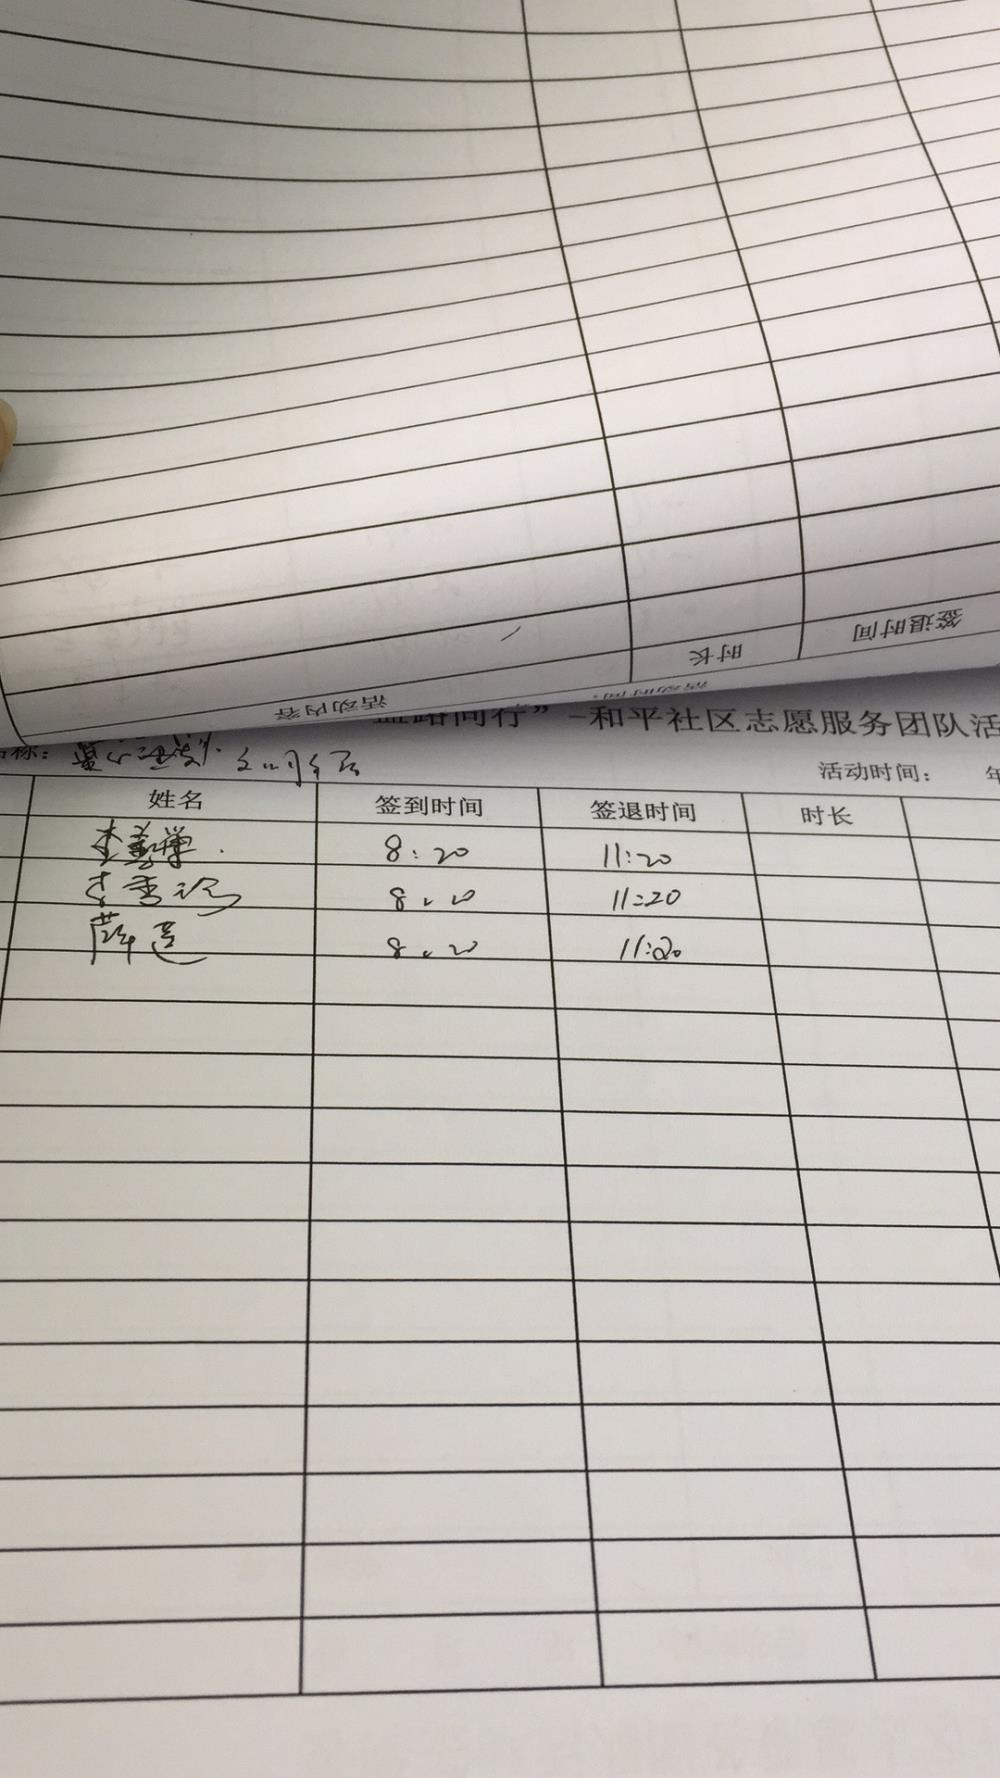 签退时间
时长
活动时间:
活动内容
路同行” -和平社区志愿服务团队活
称:
活动时间: 年
姓名 签到时间 签退时间 时长
8:20 11:20
8:20 11:20
薛莲 8:20 11:20